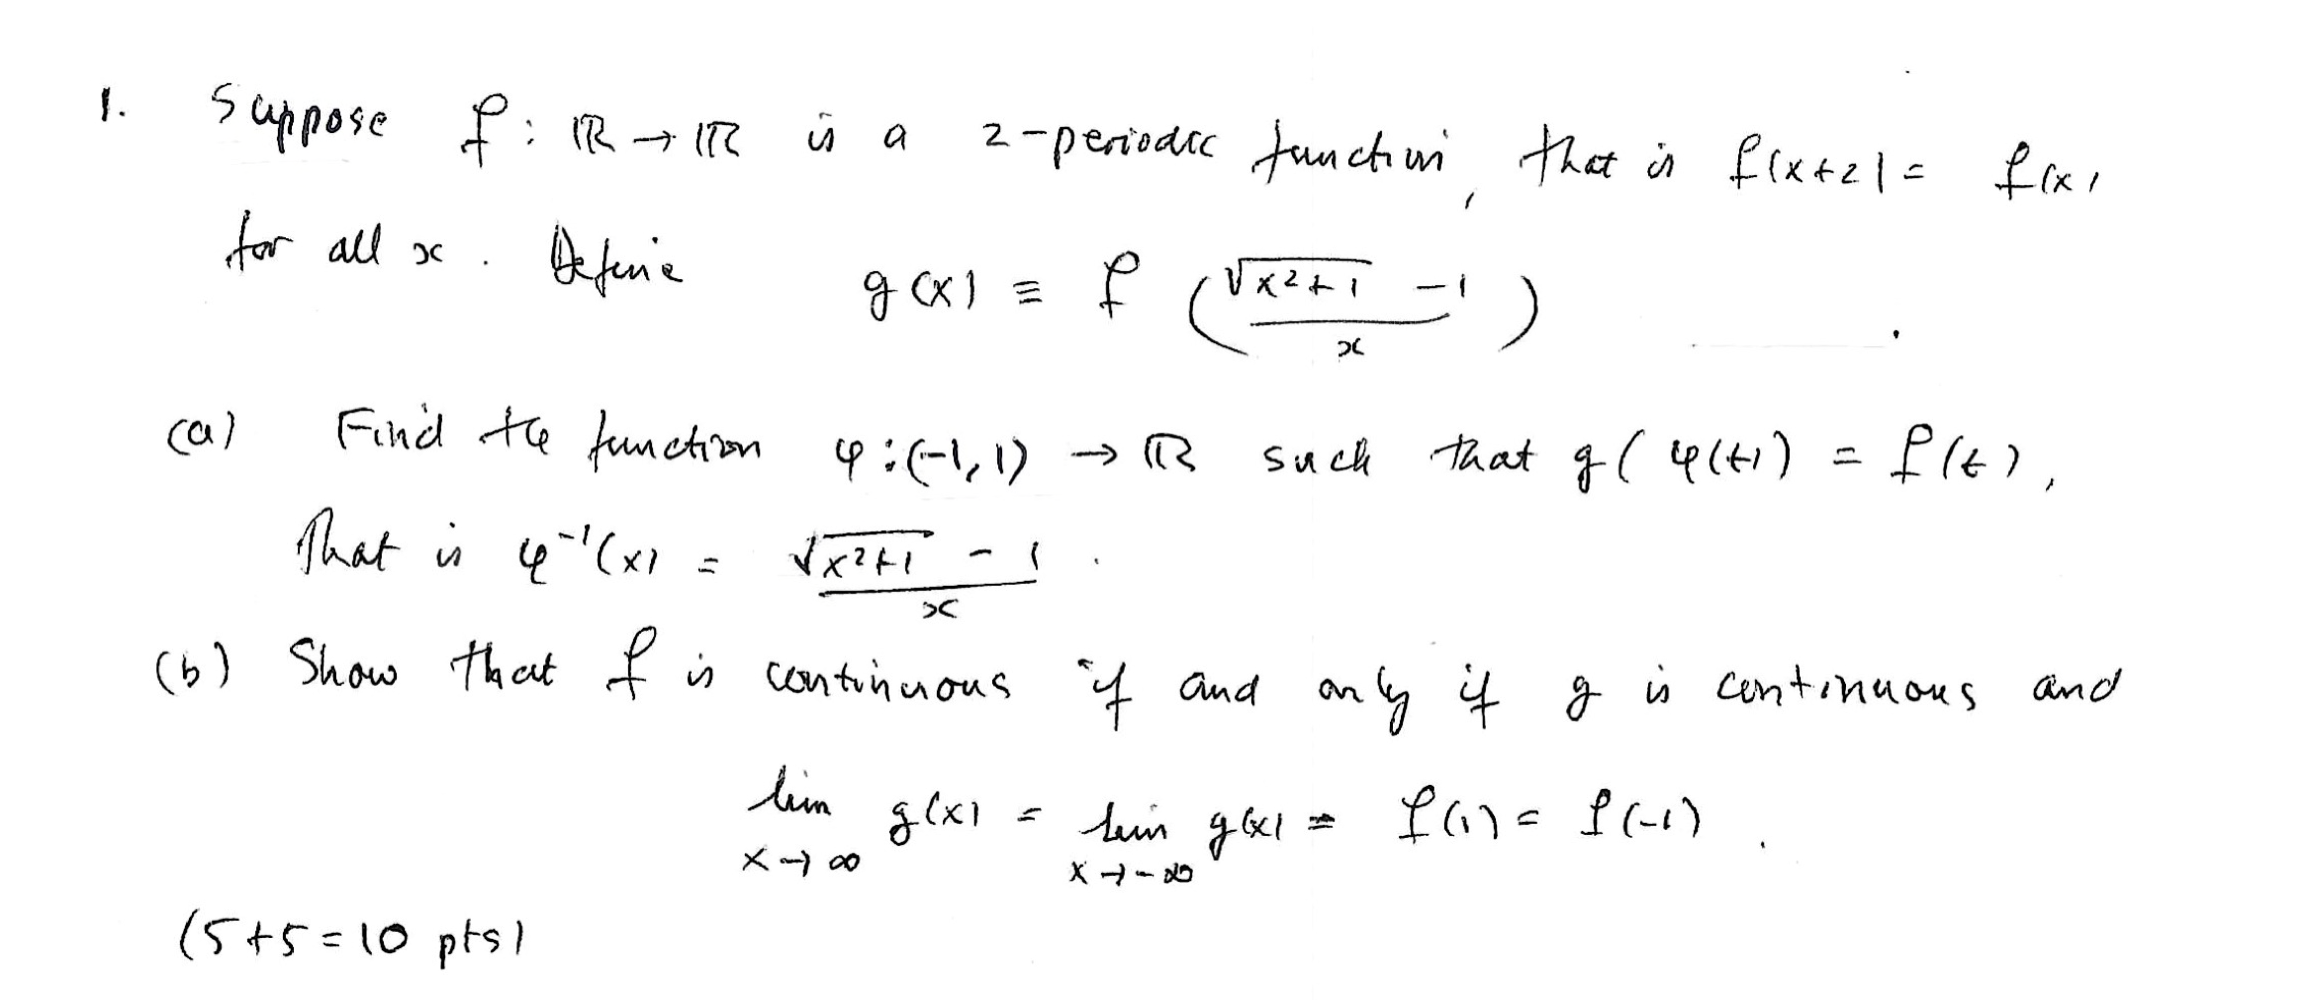 1. Suppose f : ℝ → ℝ is a 2-periodic function, that is f(x+2) = f(x)
for all x. Define g(x) ≡ f ( (√(x²+1) − 1) / x ) .
(a) Find the function φ : (−1, 1) → ℝ such that g( φ(t)) = f(t),
that is φ⁻¹(x) = (√(x²+1) − 1) / x .
(b) Show that f is continuous if and only if g is continuous and
lim x→∞ g(x) = lim x→−∞ g(x) = f(1) = f(−1) .
(5+5=10 pts)